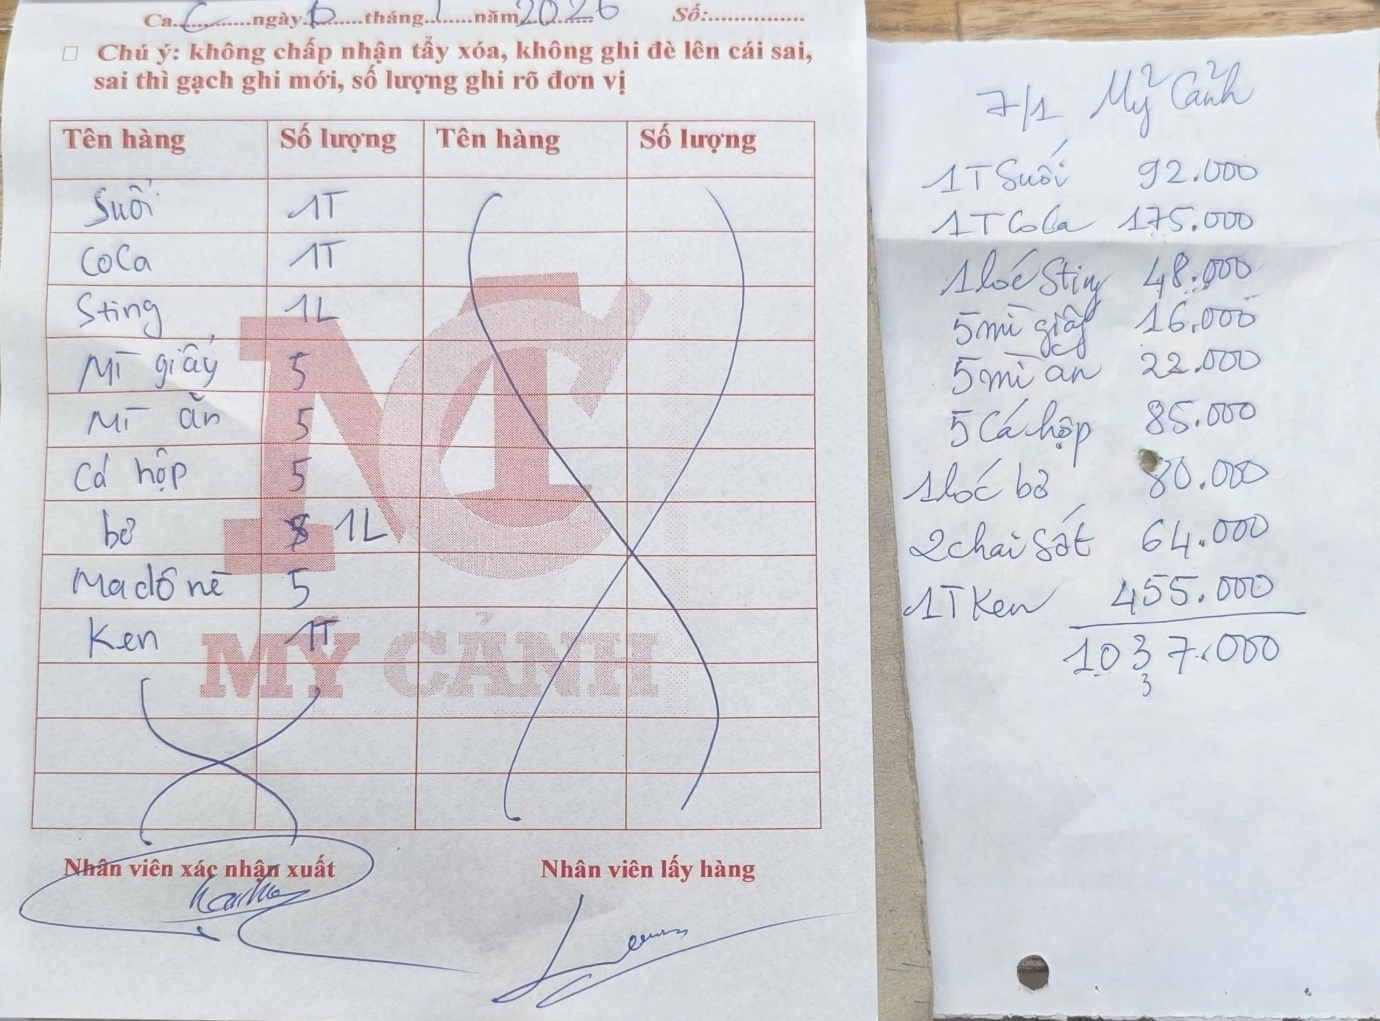 Ca C ngày 6 tháng 1 năm 2026 Số:
Chú ý: không chấp nhận tẩy xóa, không ghi đè lên cái sai,
sai thì gạch ghi mới, số lượng ghi rõ đơn vị
Tên hàng Số lượng Tên hàng Số lượng
Suối 1T
CoCa 1T
Sting 1L
Mì giấy 5
Mì ăn 5
Cá hộp 5
bơ 1L
Ma dô nê 5
Ken 1T
MC
MỸ CẢNH
Nhân viên xác nhận xuất Nhân viên lấy hàng
7/1 Mỹ Cảnh
1T Suối 92.000
1T CoCa 175.000
1 lốc Sting 48.000
5 mì giấy 16.000
5 mì ăn 22.000
5 Cá hộp 85.000
1 lốc bơ 80.000
2 chai sốt 64.000
1T Ken 455.000
1037.000
3